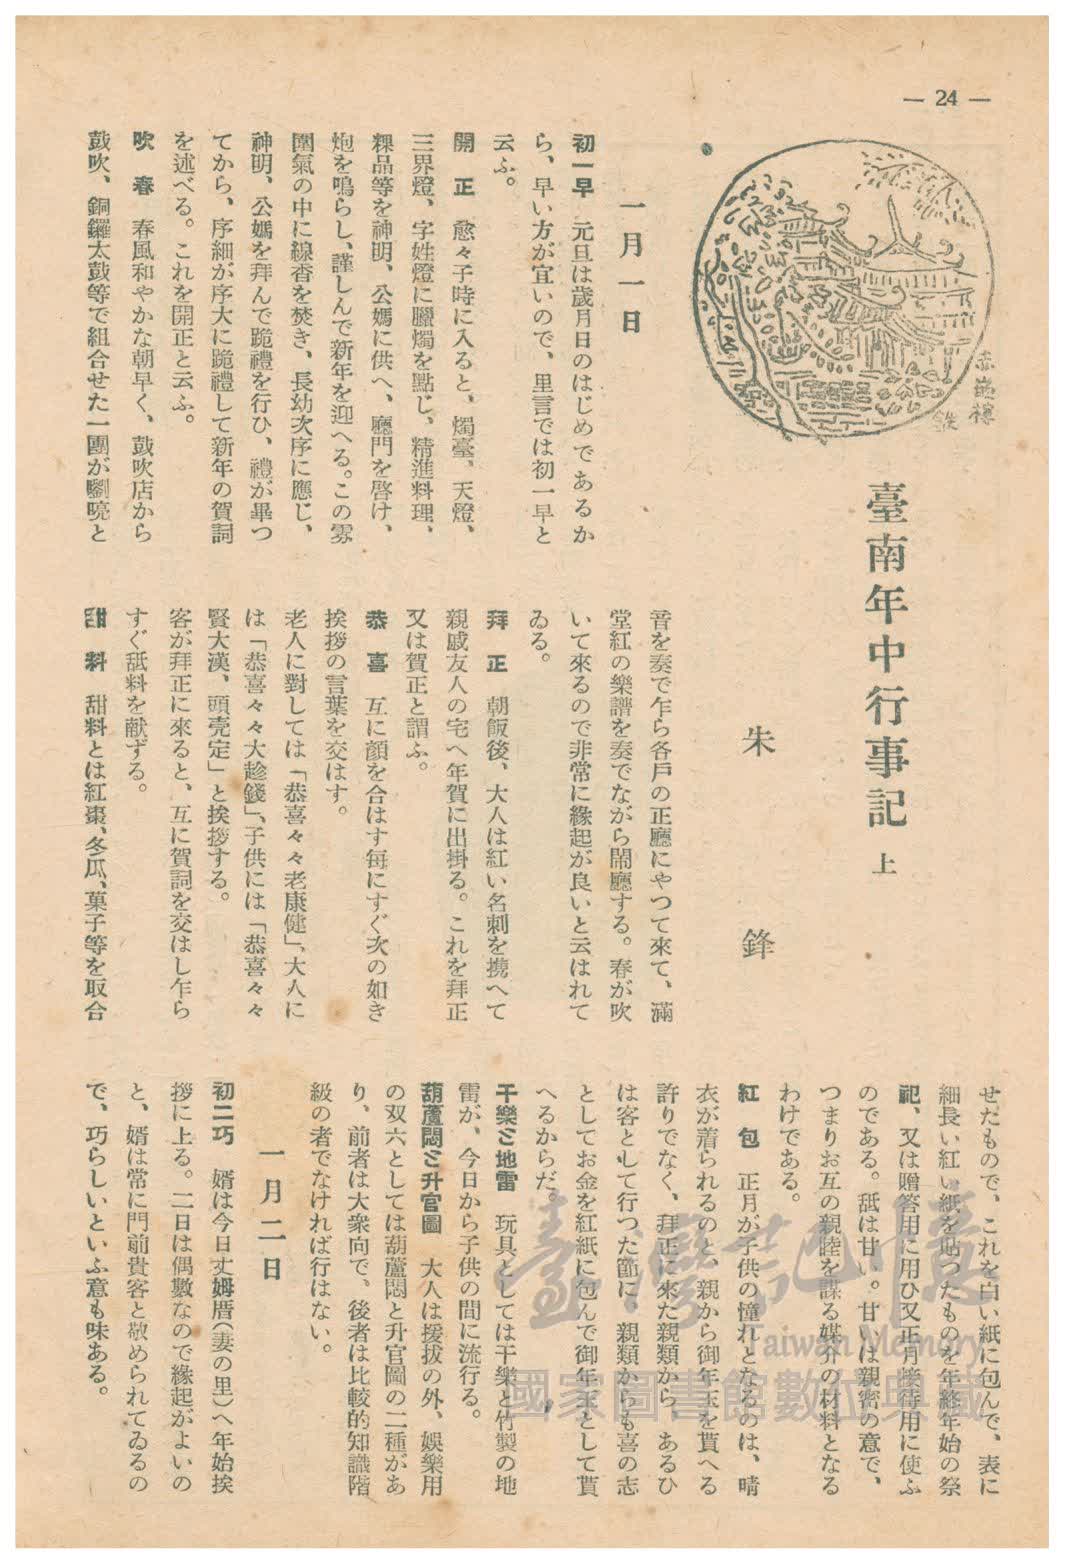 — 24 —
赤嵌樓
鉄
臺南年中行事記 上
朱鋒
一月一日
初一早 元旦は歲月日のはじめであるか
ら、早い方が宜いので、里言では初一早と
云ふ。
開正 愈々子時に入ると、燭臺、天燈、
三界燈、字姓燈に臘燭を點じ、精進料理、
粿品等を神明、公媽に供へ、廳門を啓け、
炮を鳴らし、謹しんで新年を迎へる。この雰
圍氣の中に線香を焚き、長幼次序に應じ、
神明、公媽を拜んで跪禮を行ひ、禮が畢つ
てから、序細が序大に跪禮して新年の賀詞
を述べる。これを開正と云ふ。
吹春 春風和やかな朝早く、鼓吹店から
鼓吹、銅鑼太鼓等で組合せた一團が劉喨と
音を奏で乍ら各戶の正廳にやつて來て、滿
堂紅の樂譜を奏でながら鬧廳する。春が吹
いて來るので非常に緣起が良いと云はれて
ゐる。
拜正 朝飯後、大人は紅い名刺を携へて
親戚友人の宅へ年賀に出掛る。これを拜正
又は賀正と謂ふ。
恭喜 互に顏を合はす每にすぐ次の如き
挨拶の言葉を交はす。
老人に對しては「恭喜々々老康健」、大人に
は「恭喜々々大趁錢」、子供には「恭喜々々
賢大漢、頭壳定」と挨拶する。
客が拜正に來ると、互に賀詞を交はし乍ら
すぐ甜料を献ずる。
甜料 甜料とは紅棗、冬瓜、菓子等を取合
せたもので、これを白い紙に包んで、表に
細長い紅い紙を貼つたものを年終年始の祭
祀、又は贈答用に用ひ又正月接待用に使ふ
のである。甜は甘い。甘いは親密の意で、
つまりお互の親睦を謀る媒介の材料となる
わけである。
紅包 正月が子供の憧れとなるのは、晴
衣が着られるのと、親から御年玉を貰へる
許りでなく、拜正に來た親類から、あるひ
は客として行つた節に、親類からも喜の志
としてお金を紅紙に包んで御年玉として貰
へるからだ。
干樂と地雷 玩具としては干樂と竹製の地
雷が、今日から子供の間に流行る。
葫蘆悶と升官圖 大人は援拔の外、娛樂用
の双六としては葫蘆悶と升官圖の二種があ
り、前者は大衆向で、後者は比較的知識階
級の者でなければ行はない。
一月二日
初二巧 婿は今日丈姆厝(妻の里)へ年始挨
拶に上る。二日は偶數なので緣起がよいの
と、婿は常に門前貴客と敬められてゐるの
で、巧らしいといふ意も味ある。
臺灣記憶
Taiwan Memory
國家圖書館數位典藏